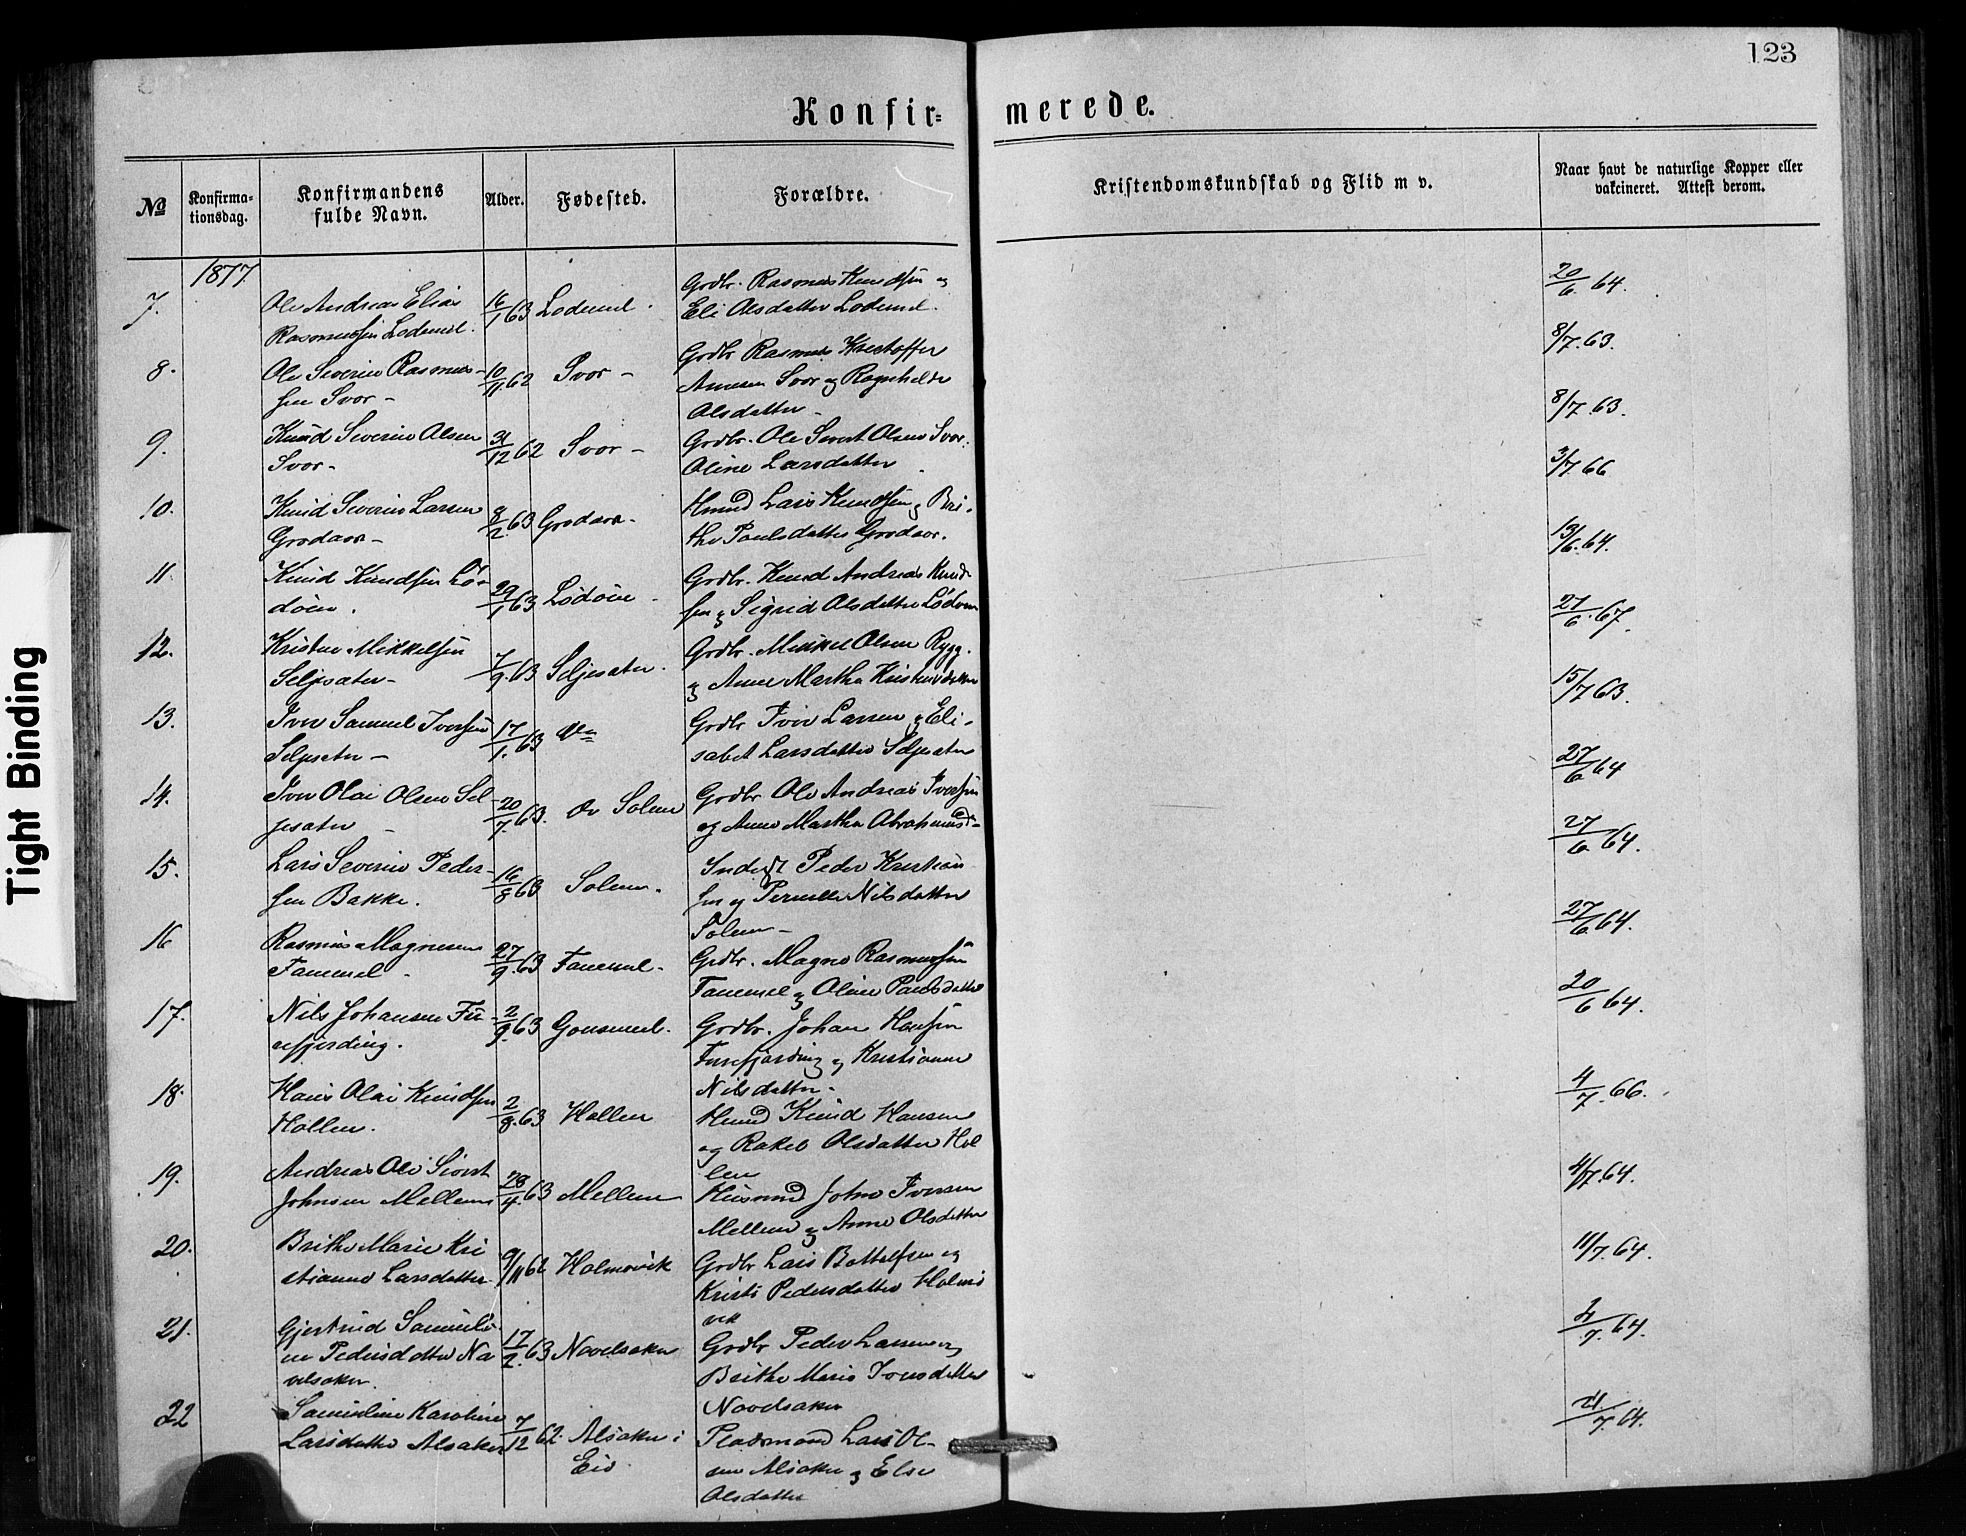 123
Konfir= merede.
№
Konfirma-
tionsdag.
Konfirmandens
fulde Navn.
Alder.
Fødested.
Forældre.
Kristendomskundskab og Flid m v.
Naar havt de naturlige Kopper eller
vakcineret. Attest derom.
1877
7.
Ole Andreas Elias
Rasmussen Lodemel.
16/1 63
Lodemel.
Grdbr. Rasmus Knudsen og
Eli Olsdatter Lodemel.
20/6. 64.
8.
Ole Severin Rasmus-
sen Svor -
10/11. 62
Svor -
Grdbr Rasmus Kristoffer
Annesen Svor og Ragnhilde
Olsdatter -
8/7. 63.
9.
Knud Severin Olsen
Svor -
31/12 62
Svor -
Grdbr. Ole Sivert Olsen Svor.
Oline Larsdatter
8/7. 63.
10.
Knud Severin Larsen
Grodaas -
8/2. 63
Grodaas -
Hmnd Lars Knudsen og Bri-
the Paulsdatter Grodaas.
3/7 66
11.
Knud Knudsen Lø-
døen.
29/1 63
Lødøen -
Grdbr. Knud Andreas Knud-
sen og Sigrid Olsdatter Lødøen
13/6. 64.
12.
Kristen Mikkelsen
Seljesæter -
7/9. 63
Seljesæter.
Grdbr. Mikkel Olsen Rygg.
og Anne Martha Kristensdatter
27/6. 67.
13.
Iver Samuel Iversen
Seljesæter -
17/1. 63
Grdbr Iver Larsen og Eli-
sabet Larsdatter Seljesæter
15/7 63.
14.
Iver Olai Olsen Sel-
jesæter -
20/7. 63.
Solem
Grdbr Ole Andreas Iversen
og Anne Martha Abrahamsd -
27/6 64
15.
Lars Severin Peder-
sen Bakke.
16/8 63
Solem.
Inderst Peder Kristian
sen og Pernille Nilsdatter
Solem -
27/6. 64.
16
Rasmus Magnesen
Tannemel -
27/9. 63
Tannemel -
Grdbr. Magne Rasmussen
Tannemel og Oline Paulsdatter
27/6. 64.
17.
Nils Johansen Fu-
refjerding.
2/9. 63
Gausemel.
Grdbr. Johan Hansen
Furefjerding og Kristianne
Nilsdatter -
20/6 64.
18.
Hans Olai Knudsen
Hollen.
2/8. 63
Hollen
Hmnd Knud Hansen
og Rakel Olsdatter Hol
len
4/7. 66.
19.
Andreas Ole Sivert
Johnsen Mellem
28/4. 63
Mellem
Husmnd John Iversen
Mellem og Anne Olsdatter
4/7. 64.
20.
Brithe Marie Kri
stianne Larsdatter
9/11 62
Holmøvik
Grdbr Lars Bottolfsen og
Kristi Pedersdatter Holmø
vik
11/7. 64.
21.
Gjertrud Samueli-
ne Pedersdatter Na
velsaker.
17/2. 63
Navelsaker
Grdbr Peder Larsen og
Brithe Marie Jonsdatter
Navelsaker
4/7. 64.
22
Samueline Karoline
Larsdatter Alsaker
7/12 62.
Alsaker i
Eid
Pladsmand Lars Ol-
sen Alsaker og Else
Olsdatter
4/7. 64.
Tight Binding